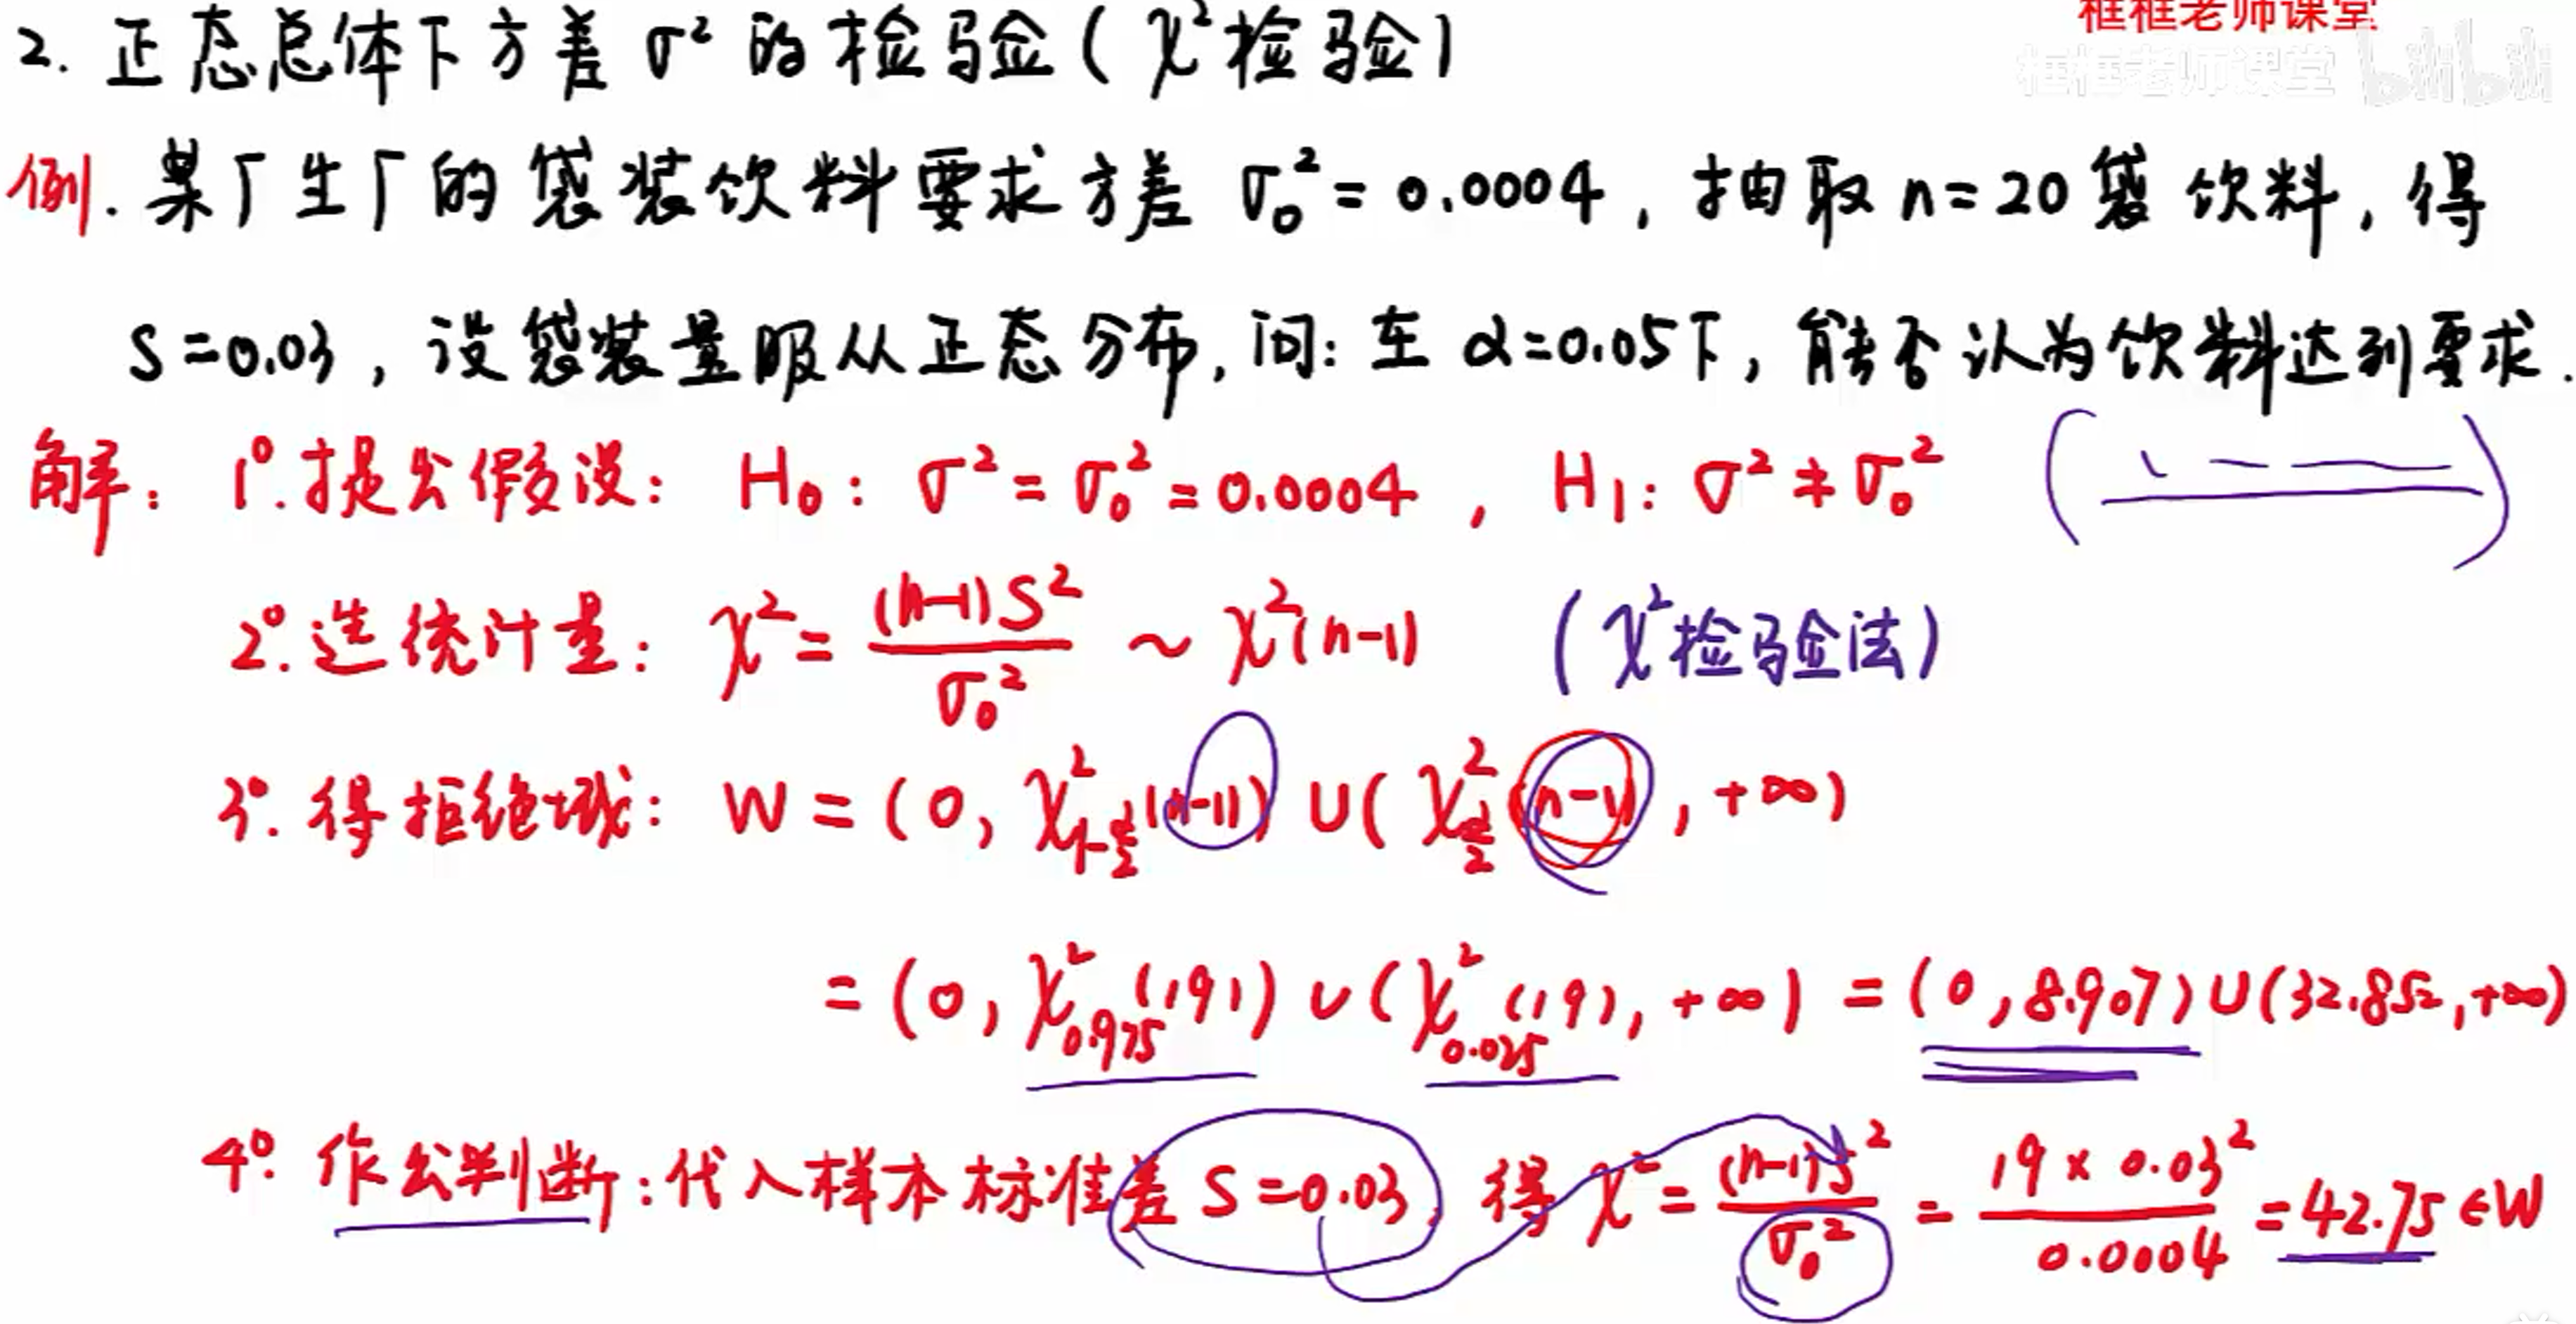 框框老师课堂
框框老师课堂 bilibili
2. 正态总体下方差 σ² 的检验 ( χ² 检验 )
例. 某厂生厂的袋装饮料要求方差 σ₀² = 0.0004 , 抽取 n = 20 袋饮料, 得
S = 0.03 , 设袋装量服从正态分布, 问: 在 α = 0.05 下, 能否认为饮料达到要求.
解: 1°. 提出假设: H₀ : σ² = σ₀² = 0.0004 , H₁ : σ² ≠ σ₀²
2°. 选统计量: χ² = (n-1)S² / σ₀² ~ χ²(n-1) ( χ² 检验法 )
3°. 得拒绝域: W = ( 0, χ²_{1-α/2}(n-1) ) ∪ ( χ²_{α/2}(n-1) , +∞ )
= ( 0, χ²_{0.975}(19) ) ∪ ( χ²_{0.025}(19), +∞ ) = ( 0, 8.907 ) ∪ ( 32.852, +∞ )
4°. 作出判断: 代入样本标准差 S = 0.03, 得 χ² = (n-1)S² / σ₀² = 19 × 0.03² / 0.0004 = 42.75 ∈ W